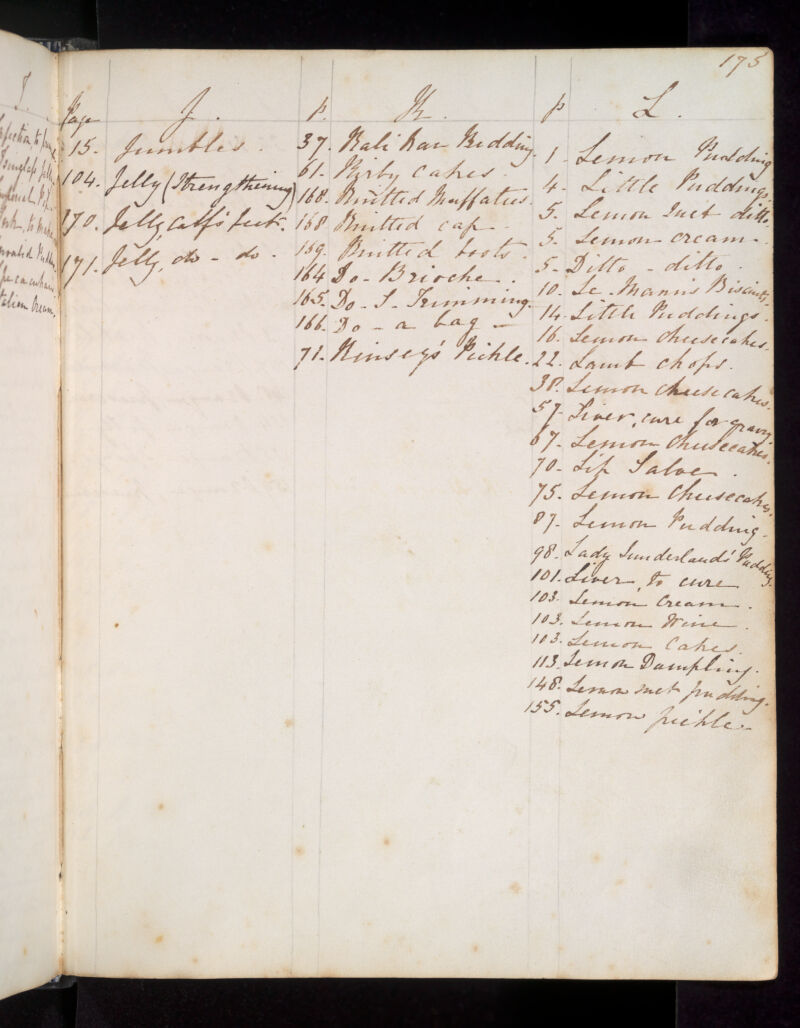 175
Page J.
15. Jumbles.
104. Jelly (Strengthening)
170. Jelly, Calf's feet.
171. Jelly, do - do.
P. K.
37. Kali Rau Pudding.
61. Kirby Cakes.
168. Knitted Muffatees.
168 Knitted cap.
159. Knitted boots.
164 Do - Brioche.
165. Do - S - Trimming.
166. Do - a bag -
71. Kinsey's Pickle.
P L.
1. Lemon Pudding
4. Little Puddings.
5. Lemon Suet ditto.
5. Lemon cream.
5. Ditto - ditto.
10. Le Mann's Biscuits.
14. Little Puddings.
16. Lemon cheesecakes.
22. Lamb chops.
38. Lemon cheesecakes.
57. Liver, cure for gravy.
67. Lemon Cheesecakes.
70. Lip Salve.
75. Lemon Cheesecakes.
87. Lemon Pudding.
98. Lady Sunderland's Pudding.
101. Liver, to cure
103. Lemon Cream.
103. Lemon Wine.
103. Lemon Cakes.
113. Lemon Dumpling.
148. Lemon suet pudding.
155. Lemon pickle.